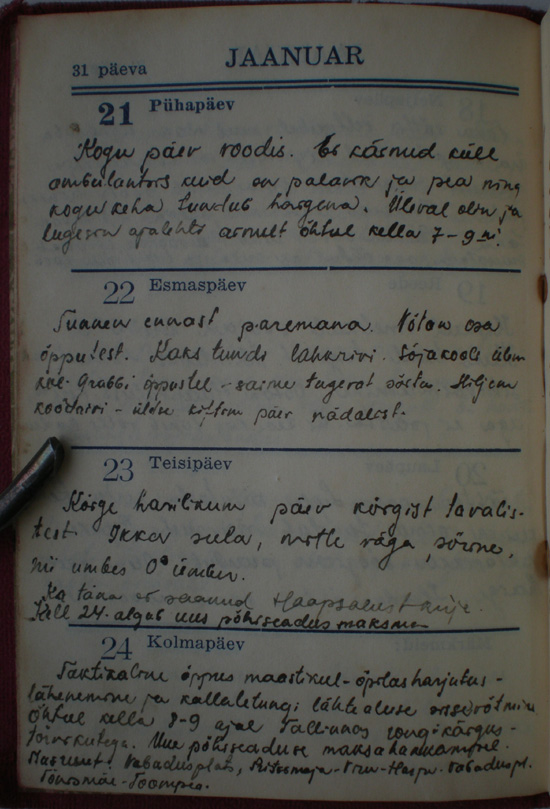 31 päeva JAANUAR
21 Pühapäev
Kogu päev voodis. Ei käinud küll
ambulantsis kuid on palavik ja pea ning
kogu keha tundub haigena. Üleval olin ja
lugesin ajalehti ainult õhtul kella 7-9-ni.
22 Esmaspäev
Tunnen ennast paremana. Võtan osa
õppusest. Kaks tundi lahkrivi. Sõjakooli
grupi õppustel - saime tugevat sõita. Hiljem
koondrivi - üldse päev nädalast.
23 Teisipäev
Kõige harilikum päev kõigist tavalis-
test. Ikka sula, mitte väga soine,
nii umbes 0° ümber.
Ka täna ei saanud Haapsalust kirja.
Kell 24 algab uus põhiseadus maksma
24 Kolmapäev
Taktikaline õppus maastikul - õpilasharjutus -
lähenemine ja kallaletungi lähtealuse
Õhtul kella 8-9 ajal Tallinnas rongikäigus -
tõrvikutega. Uue põhiseaduse maksahakkamine.
Vabadusplats, - Viru - Harju - Vabaduspl.
Tõnismäe - Toompea.